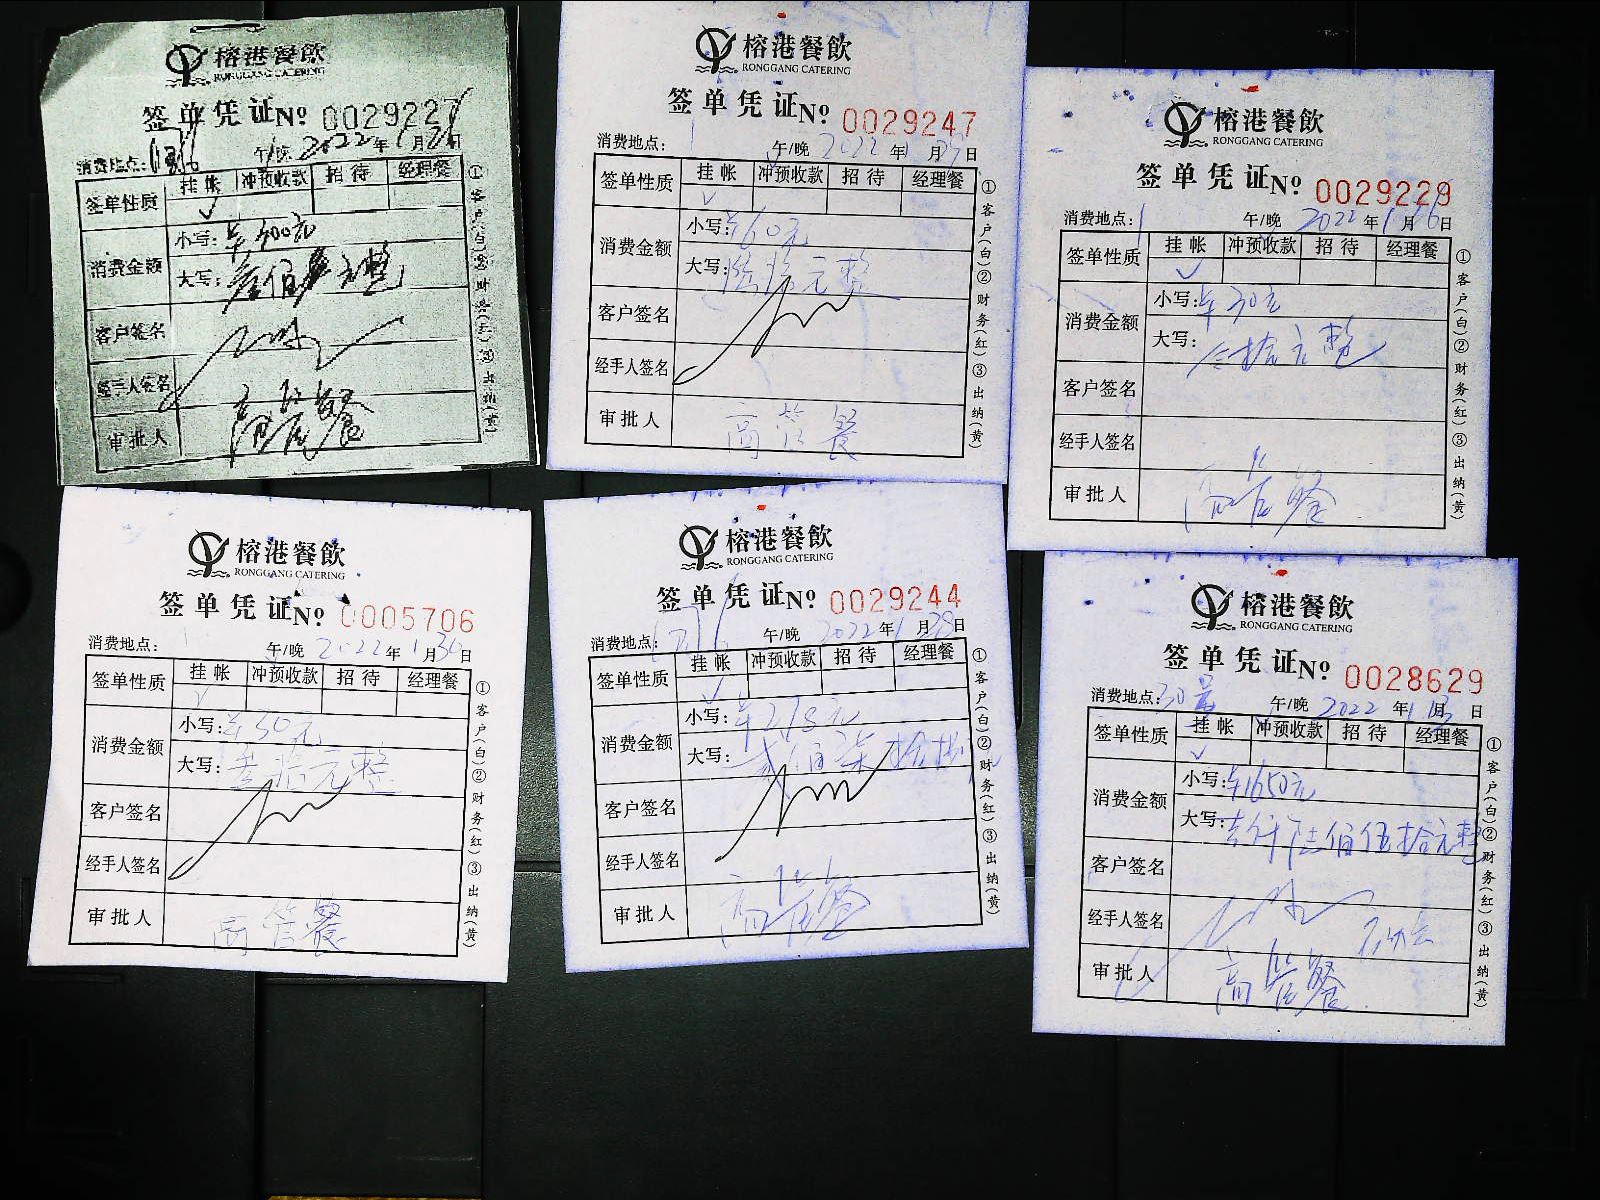 榕港餐飲
RONGGANG CATERING
签单凭证№ 0029227
消费地点: 午/晚 2022年1月26日
签单性质 挂帐 冲预收款 招待 经理餐
✓
消费金额 小写:¥300元
大写:叁佰元整
客户签名
经手人签名
审批人 高管餐
①客户(白)②财务(红)③出纳(黄)
榕港餐飲
RONGGANG CATERING
签单凭证№ 0029247
消费地点: 1 午/晚 2022年1月27日
签单性质 挂帐 冲预收款 招待 经理餐
✓
消费金额 小写:¥60元
大写:陆拾元整
客户签名
经手人签名
审批人 高管餐
①客户(白)②财务(红)③出纳(黄)
榕港餐飲
RONGGANG CATERING
签单凭证№ 0029229
消费地点: 1 午/晚 2022年1月26日
签单性质 挂帐 冲预收款 招待 经理餐
✓
消费金额 小写:¥30元
大写:叁拾元整
客户签名
经手人签名
审批人 高管餐
①客户(白)②财务(红)③出纳(黄)
榕港餐飲
RONGGANG CATERING
签单凭证№ 0005706
消费地点: 1 午/晚 2022年1月30日
签单性质 挂帐 冲预收款 招待 经理餐
✓
消费金额 小写:¥30元
大写:叁拾元整
客户签名
经手人签名
审批人 高管餐
①客户(白)②财务(红)③出纳(黄)
榕港餐飲
RONGGANG CATERING
签单凭证№ 0029244
消费地点: 午/晚 2022年1月28日
签单性质 挂帐 冲预收款 招待 经理餐
✓
消费金额 小写:¥278元
大写:贰佰柒拾捌
客户签名
经手人签名
审批人 高管餐
①客户(白)②财务(红)③出纳(黄)
榕港餐飲
RONGGANG CATERING
签单凭证№ 0028629
消费地点: 30号 午/晚 2022年1月日
签单性质 挂帐 冲预收款 招待 经理餐
✓
消费金额 小写:¥1650元
大写:壹仟陆佰伍拾元整
客户签名
经手人签名
审批人 高管餐
①客户(白)②财务(红)③出纳(黄)